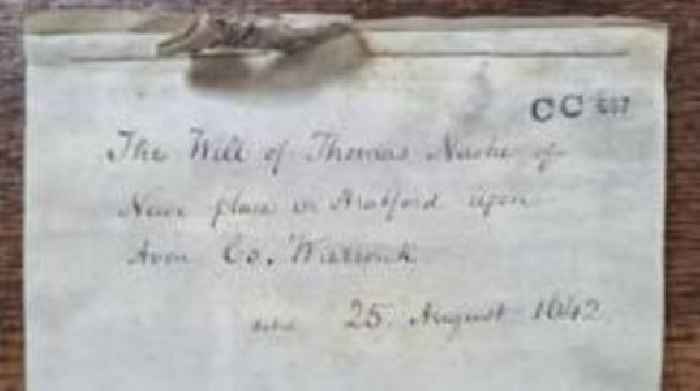 CC
The Will of Thomas Nashe of
New place in Stratford upon
Avon Co. Warwick
25 August 1642